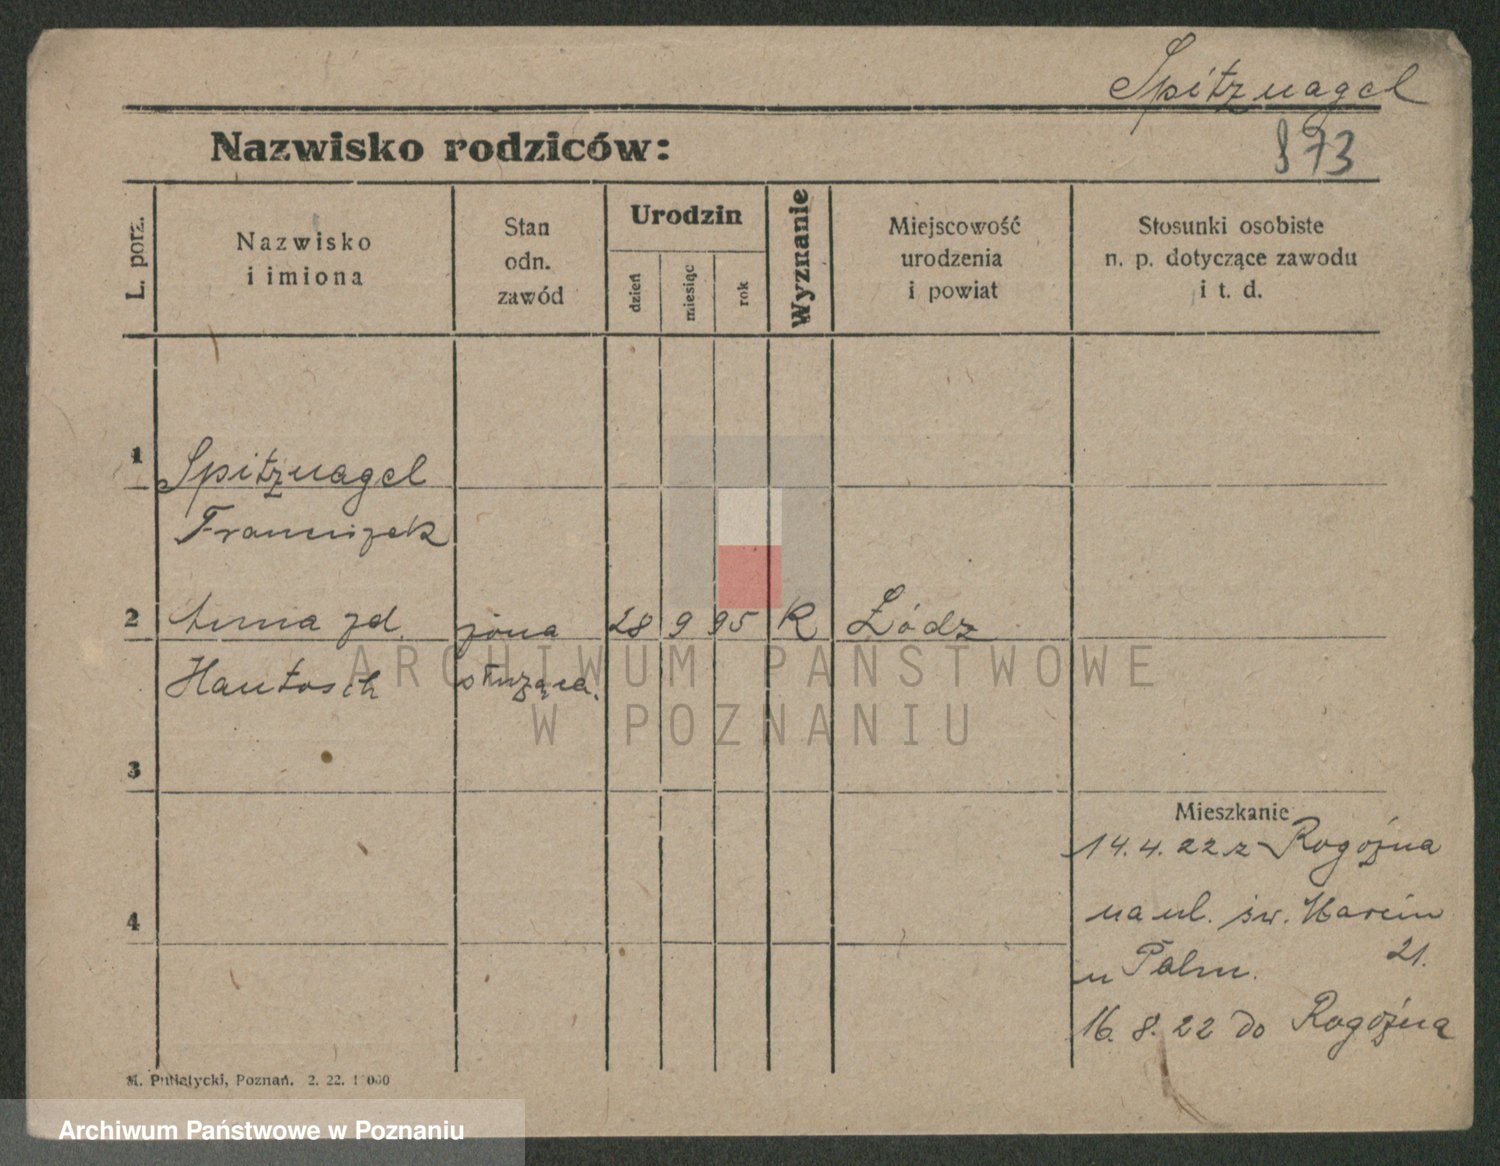 Spitznagel
Nazwisko rodziców:
873
L. porz.
Nazwisko
i imiona
Stan
odn.
zawód
Urodzin
dzień
miesiąc
rok
Wyznanie
Miejscowość
urodzenia
i powiat
Stosunki osobiste
n. p. dotyczące zawodu
i t. d.
1 Spitznagel
Franciszek
2 Anna zd. żona 28 9 95 K Łódz
Hantosch służąca.
ARCHIWUM PAŃSTWOWE
W POZNANIU
3
Mieszkanie
14.4.22 z Rogoźna
4
na ul. św. Marcin
21.
u Palm.
16.8.22 do Rogoźna
M. Putiatycki, Poznań. 2. 22.
Archiwum Państwowe w Poznaniu